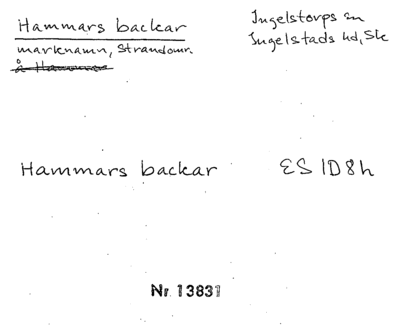 Hammars backar
marknamn, strandomr.
å Hammar
Ingelstorps sn
Ingelstads hd, Sk
Hammars backar
ES 1D8h
Nr 13831